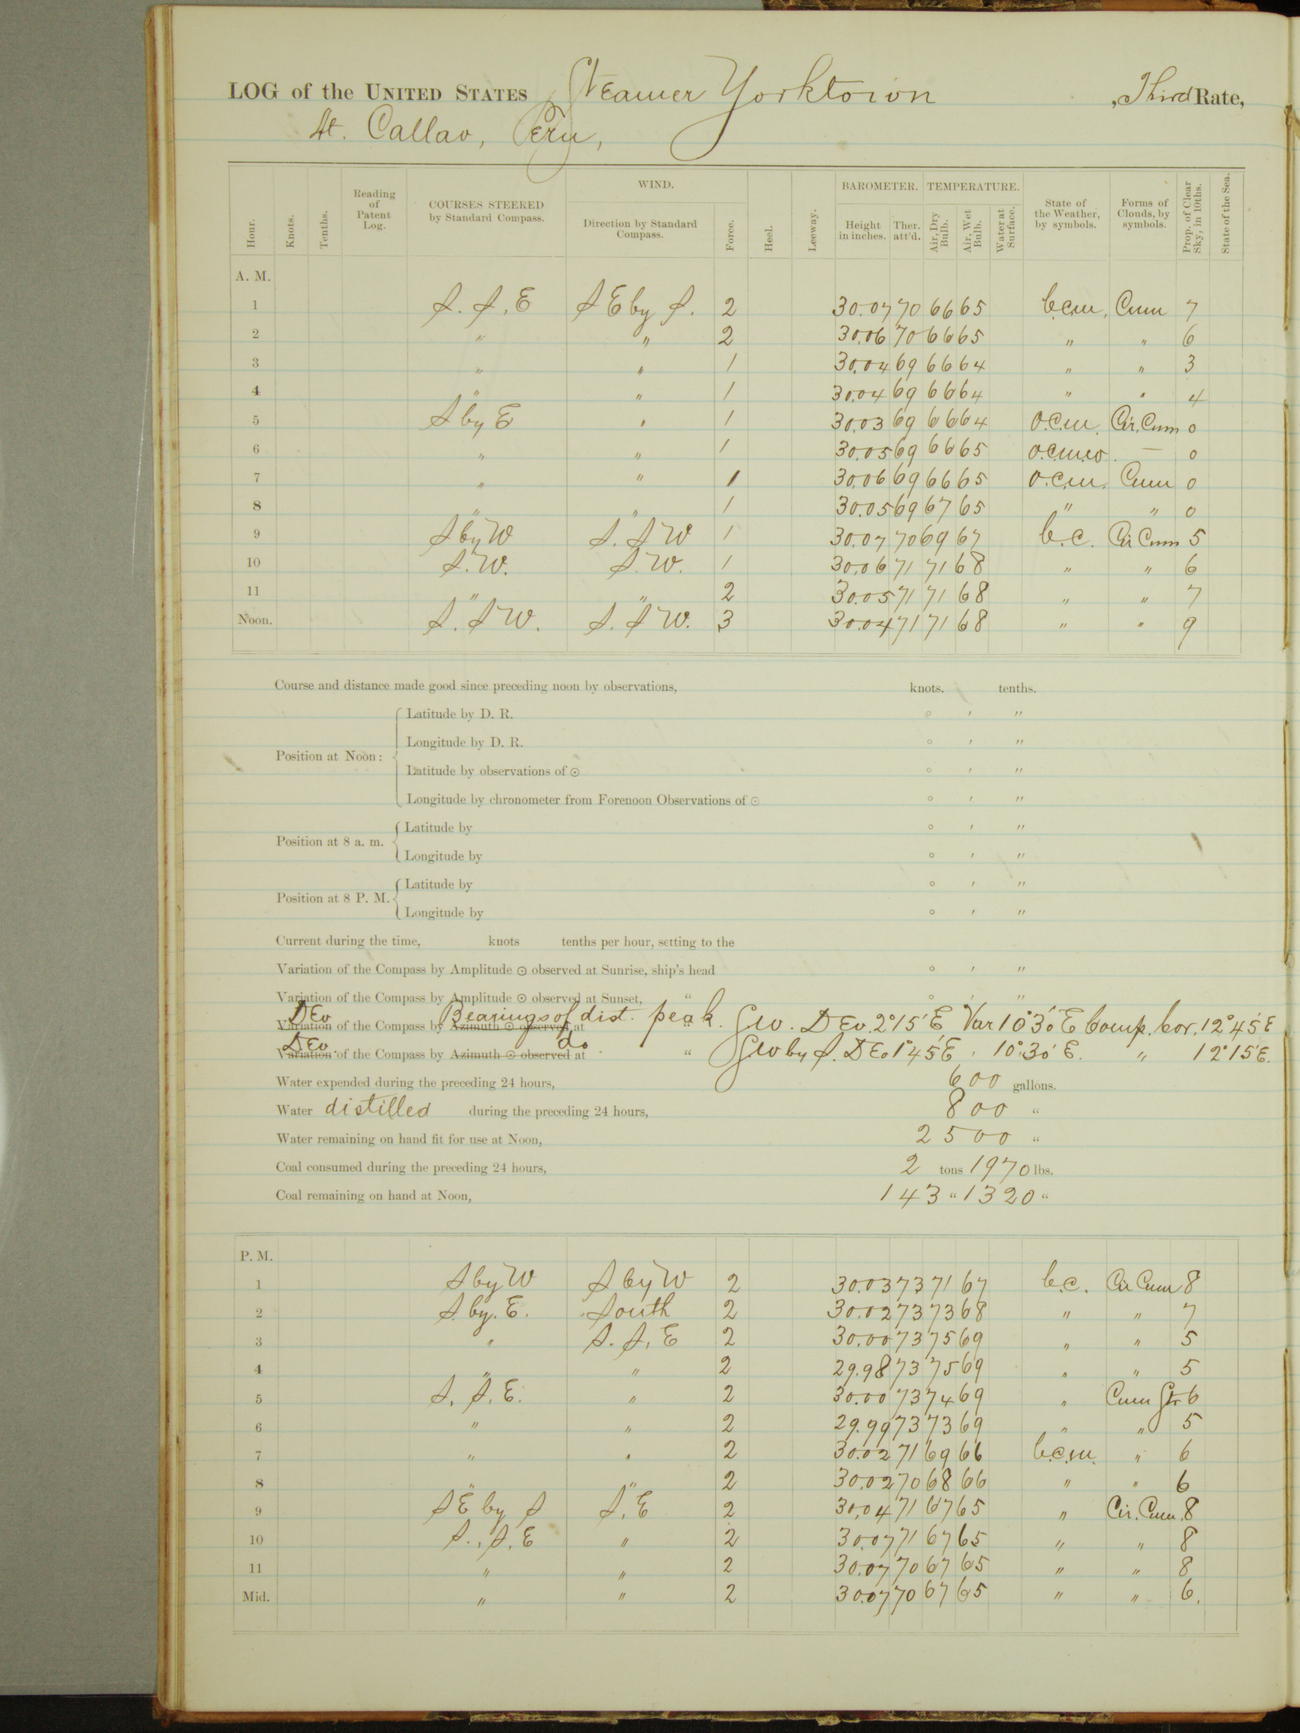 LOG of the UNITED STATES Steamer Yorktown , Third Rate,
At. Callao, Peru,
WIND. BAROMETER. TEMPERATURE.
Hour. Knots. Tenths. Reading of Patent Log. COURSES STEERED by Standard Compass. Direction by Standard Compass. Force. Heel. Leeway. Height in inches. Ther. att'd. Air, Dry Bulb. Air, Wet Bulb. Water at Surface. State of the Weather, by symbols. Forms of Clouds, by symbols. Prop. of Clear Sky, in 10ths. State of the Sea.
A. M.
1 S. S. E S E by S. 2 30.07 70 66 65 b.c.m, Cum 7
2 " " 2 30.06 70 66 65 " " 6
3 " " 1 30.04 69 66 64 " " 3
4 " " 1 30.04 69 66 64 " " 4
5 S by E " 1 30.03 69 66 64 o.c.m. Cir.Cum 0
6 " " 1 30.05 69 66 65 — 0
7 " " 1 30.06 69 66 65 o.c.m. Cum 0
8 " " 1 30.05 69 67 65 " " 0
9 S by W S. S W 1 30.07 70 69 67 b.c. Cir Cum 5
10 S.W. S.W. 1 30.06 71 71 68 " " 6
11 " " 2 30.05 71 71 68 " " 7
Noon. S. S W. S. S W. 3 30.04 71 71 68 " " 9
Course and distance made good since preceding noon by observations, knots. tenths.
Position at Noon: Latitude by D. R. ° ′ ″
Longitude by D. R. ° ′ ″
Latitude by observations of ☉ ° ′ ″
Longitude by chronometer from Forenoon Observations of ☉ ° ′ ″
Position at 8 a. m. Latitude by ° ′ ″
Longitude by ° ′ ″
Position at 8 P. M. Latitude by ° ′ ″
Longitude by ° ′ ″
Current during the time, knots tenths per hour, setting to the
Variation of the Compass by Amplitude ☉ observed at Sunrise, ship's head ° ′ ″
Variation of the Compass by Amplitude ☉ observed at Sunset, " ° ′ ″
Dev Bearings of dist. peak.
Variation of the Compass by Azimuth ☉ observed at " Dev. 2°15′E Var 10°30′E Comp. Cor. 12°45′E
Dev. do
Variation of the Compass by Azimuth ☉ observed at " by S. Dev 1°45′E, 10°30′E. " 12°15′E.
Water expended during the preceding 24 hours, 600 gallons.
Water distilled during the preceding 24 hours, 800 "
Water remaining on hand fit for use at Noon, 2500 "
Coal consumed during the preceding 24 hours, 2 tons 1970 lbs.
Coal remaining on hand at Noon, 143 " 1320 "
P. M.
1 S by W S by W 2 30.03 73 71 67 b.c. Cir Cum 8
2 S by. E. South 2 30.02 73 73 68 " " 7
3 " S. S. E 2 30.00 73 75 69 " " 5
4 " " 2 29.98 73 75 69 " " 5
5 S. S. E. " 2 30.00 73 74 69 " Cum Str 6
6 " " 2 29.99 73 73 69 " " 5
7 " " 2 30.02 71 69 66 b.c.m. " 6
8 " " 2 30.02 70 68 66 " " 6
9 S E by S S. E 2 30.04 71 67 65 " Cir. Cum. 8
10 S., S. E " 2 30.07 71 67 65 " " 8
11 " " 2 30.07 70 67 65 " " 8
Mid. " " 2 30.07 70 67 65 " " 6.